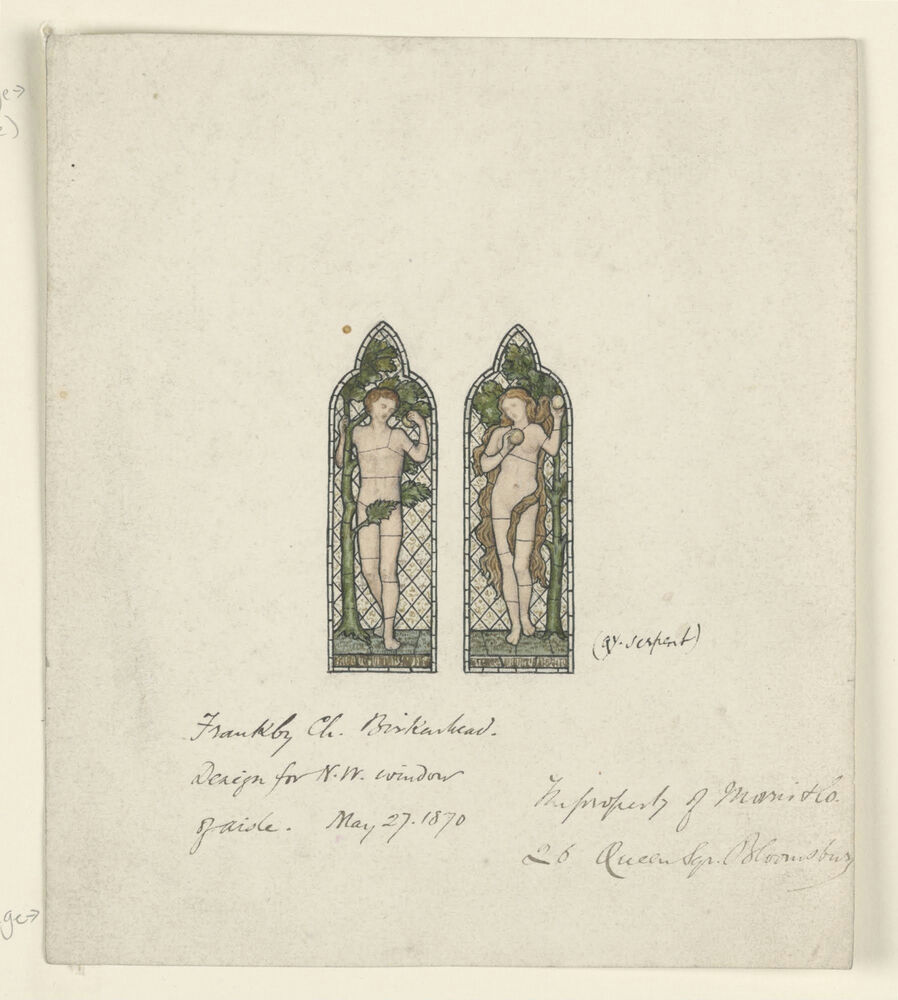 ge→
e)
(qy. serpent)
Frankby Ch. Birkenhead.
Design for N.W. window
of aisle. May 27. 1870
The property of Morris & Co.
26 Queen Sqr. Bloomsbury
ge→